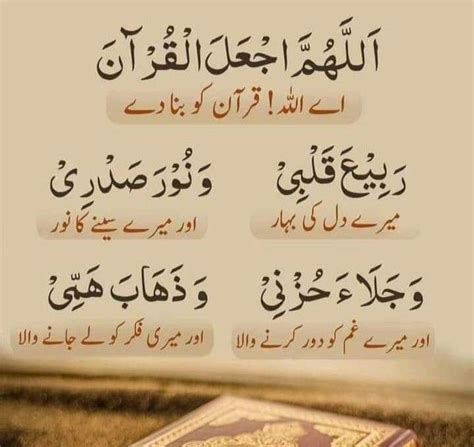 اَللّٰهُمَّ اجْعَلِ الْقُرْآنَ
اے اللہ! قرآن کو بنا دے
رَبِيْعَ قَلْبِيْ وَنُوْرَ صَدْرِيْ
میرے دل کی بہار اور میرے سینے کا نور
وَجَلَاءَ حُزْنِيْ وَذَهَابَ هَمِّيْ
اور میرے غم کو دور کرنے والا اور میری فکر کو لے جانے والا